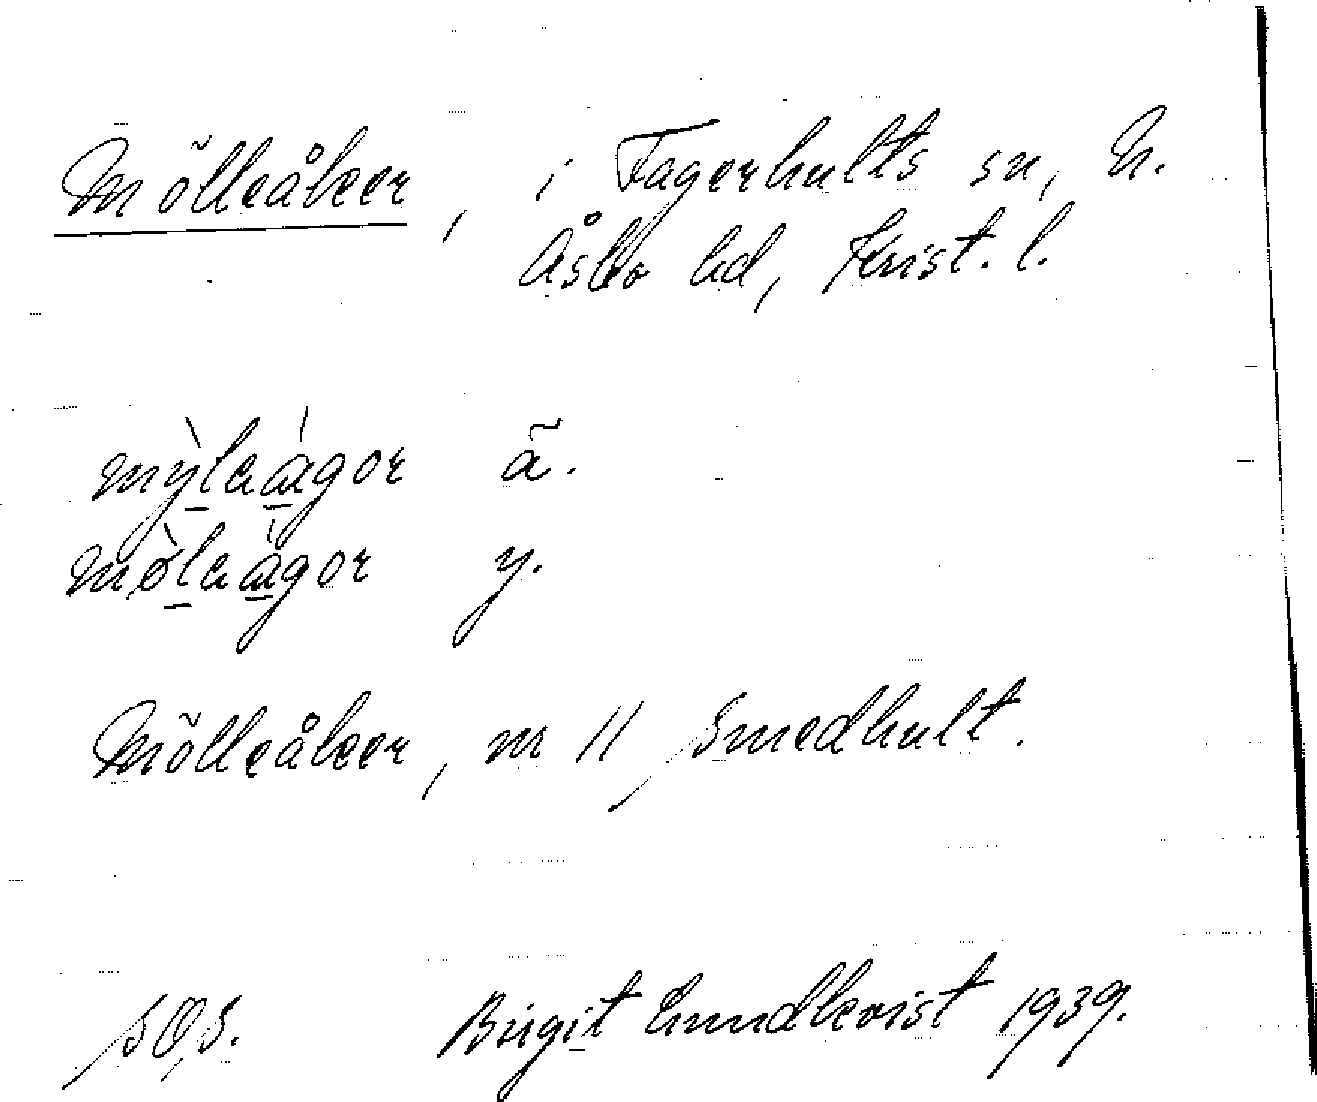 Mölleåker, i Fagerhults sn, N.
Åsbo hd, Krist. l.
ä.
y.
Mölleåker, nr 11, Smedhult.
Birgit Lundkvist 1939.